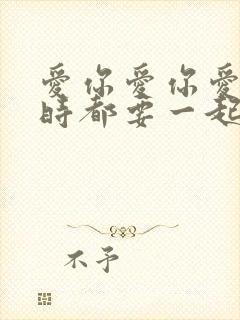 愛你愛你愛
時都要一起
不予